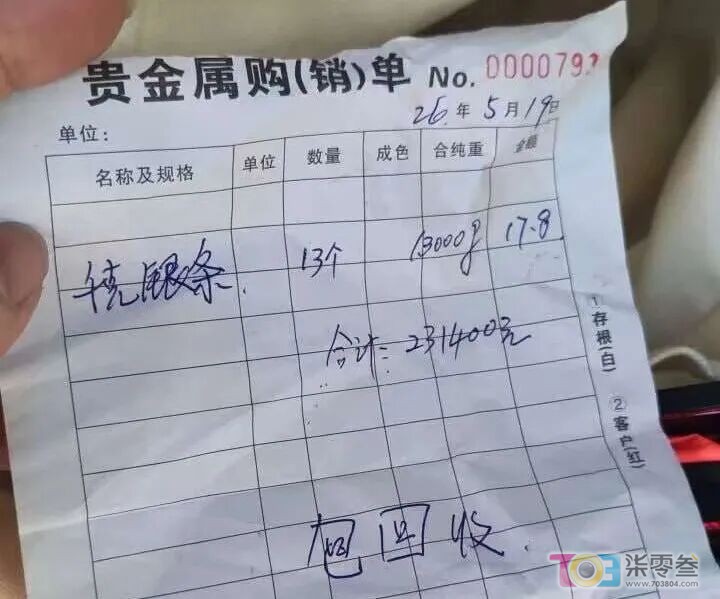 贵金属购(销)单 No. 0000793
26年5月19日
单位:
名称及规格 单位 数量 成色 合纯重 金额
千克银条. 13个 13000g 17.8
合计: 231400元
包回收.
①存根(白) ②客户(红)
703 柒零叁
www.703804.com